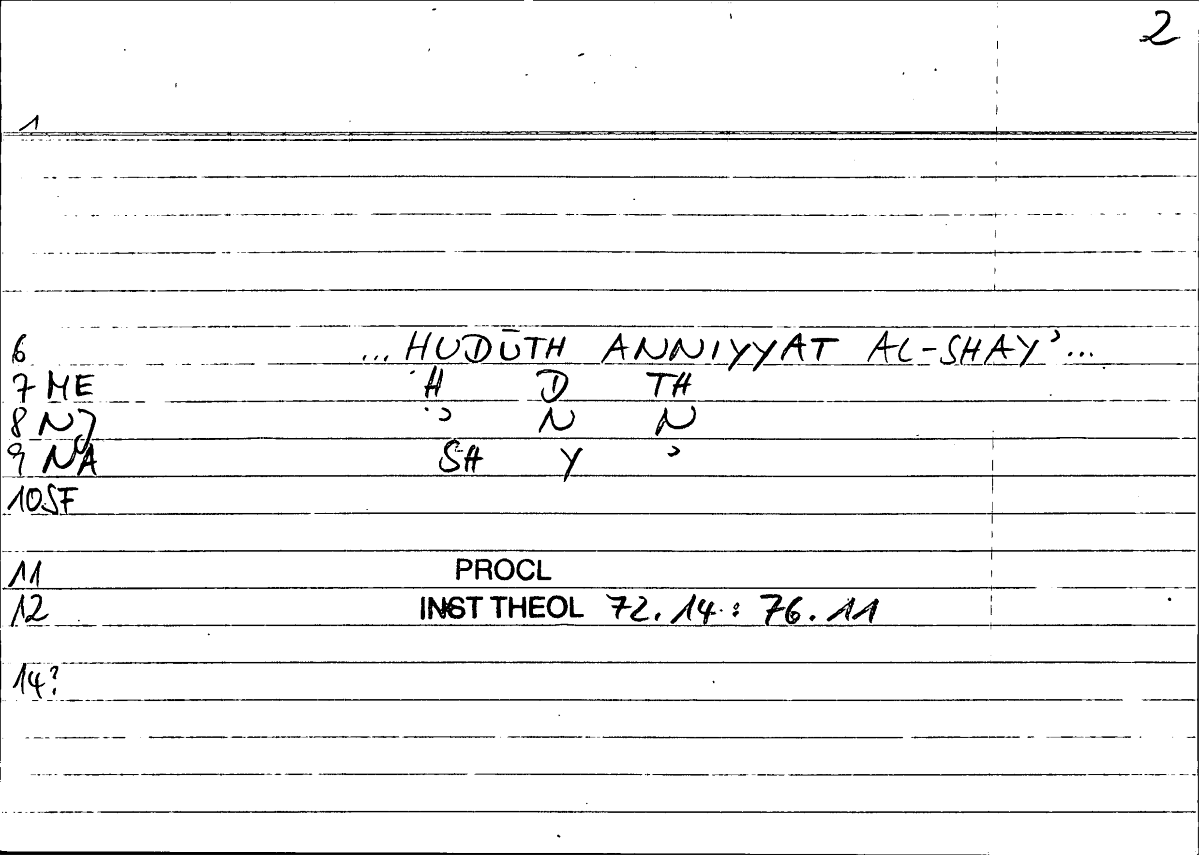 2
1
6 ... ḤUDŪTH ANNIYYAT AL-SHAYʾ...
7 ME Ḥ D TH
8 NJ ʾ N N
9 NA SH Y ʾ
10 SF
11 PROCL
12 INST THEOL 72.14 : 76.11
14?